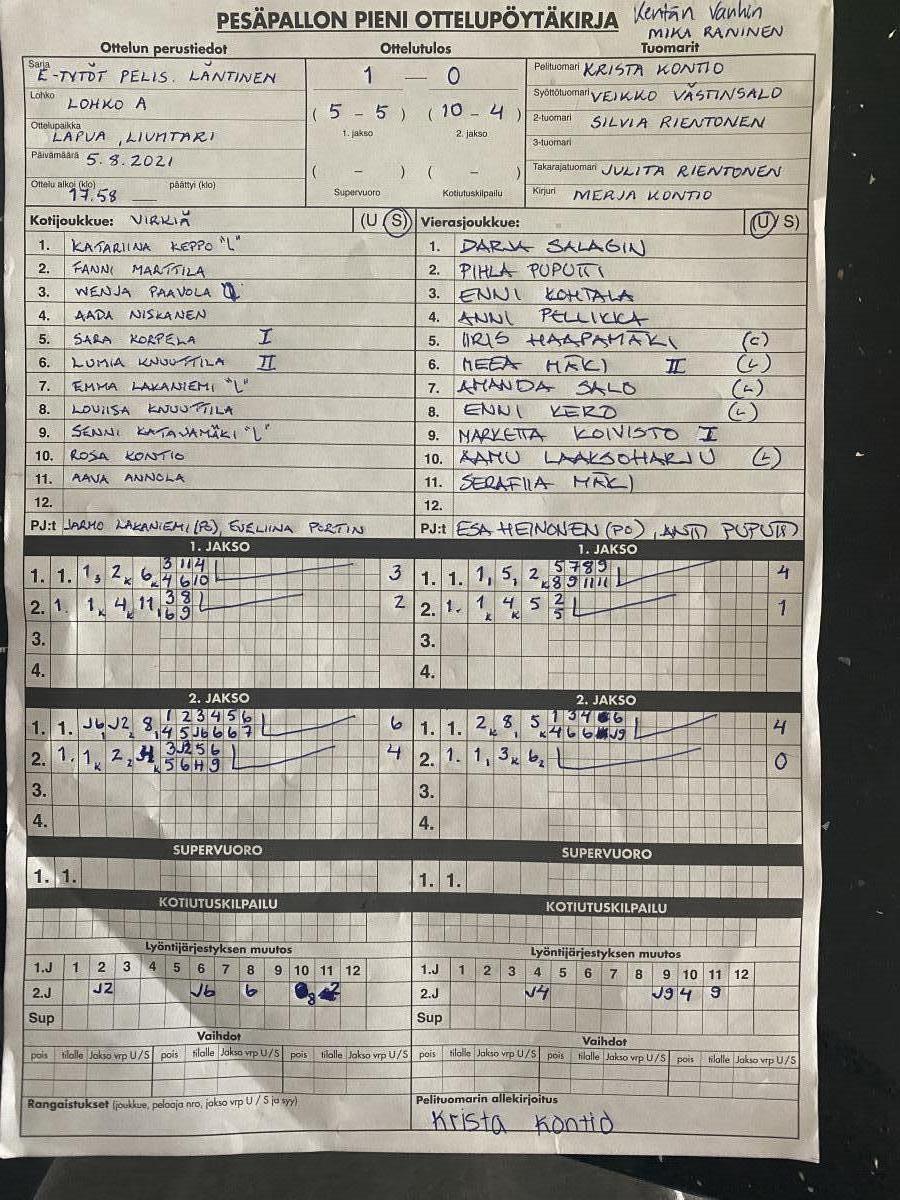 PESÄPALLON PIENI OTTELUPÖYTÄKIRJA
Kentän Vanhin
MIKA RANINEN
Ottelun perustiedot
Ottelutulos
Tuomarit
Sarja E-TYTÖT PELIS. LÄNTINEN
1 — 0
Pelituomari KRISTA KONTIO
Lohko LOHKO A
(5 - 5) (10 - 4)
Syöttötuomari VEIKKO VÄSTINSALO
Ottelupaikka LAPUA, LIUHTARI
1. jakso 2. jakso
2-tuomari SILVIA RIENTONEN
3-tuomari
Päivämäärä 5.8.2021
( - ) ( - )
Takarajatuomari JULITA RIENTONEN
Ottelu alkoi (klo) 17.58 päättyi (klo)
Supervuoro Kotiutuskilpailu
Kirjuri MERJA KONTIO
Kotijoukkue: VIRKIÄ (U S)
Vierasjoukkue: (U/S)
1. KATARIINA KEPPO "L"
1. DARJA SALAGIN
2. FANNI MARTTILA
2. PIHLA PUPUTTI
3. WENJA PAAVOLA
3. ENNI KOHTALA
4. AADA NISKANEN
4. ANNI PELLIKKA
5. SARA KORPELA I
5. IIRIS HAAPAMÄKI (C)
6. LUMIA KNUUTTILA II
6. MEEA MÄKI II (L)
7. EMMA LAKANIEMI "L"
7. AMANDA SALO (L)
8. LOVIISA KNUUTTILA
8. ENNI KERO (L)
9. SENNI KATAJAMÄKI "L"
9. MARKETTA KOIVISTO I
10. ROSA KONTIO
10. AAMU LAAKSOHARJU (L)
11. AAVA ANNOLA
11. SERAFIIA MÄKI
12.
12.
PJ:t JARMO LAKANIEMI (PO), EVELIINA PORTIN
PJ:t ESA HEINONEN (PO), ANTTI PUPUTTI
1. JAKSO
1. JAKSO
1. 1. 1, 2 K 6 K 3 11 4 3
4 6 10
1. 1. 1, 5, 2 K 5 7 8 9 4
8 9 11 11
2. 1. 1 K 4 K 11, 3 8 2
6 9
2. 1. 1 K 4 K 5 2 1
5
3.
3.
4.
4.
2. JAKSO
2. JAKSO
1. 1. J6, J2 8, 1 2 3 4 5 6 6
4 5 J6 6 6 7
1. 1. 2 K 8, 5 K 1 3 4 6 4
4 6 6 J9
2. 1. 1 K 2 2 3 J2 5 6 4
5 6 11 9
2. 1. 1, 3 K 6 2 0
3.
3.
4.
4.
SUPERVUORO
SUPERVUORO
1. 1.
1. 1.
KOTIUTUSKILPAILU
KOTIUTUSKILPAILU
Lyöntijärjestyksen muutos
Lyöntijärjestyksen muutos
1.J 1 2 3 4 5 6 7 8 9 10 11 12
1.J 1 2 3 4 5 6 7 8 9 10 11 12
2.J J2 J6 6 8
2.J J4 J9 4 9
Sup
Sup
Vaihdot
Vaihdot
pois tilalle Jakso vrp U/S pois tilalle Jakso vrp U/S pois tilalle Jakso vrp U/S
pois tilalle Jakso vrp U/S pois tilalle Jakso vrp U/S pois tilalle Jakso vrp U/S
Rangaistukset (joukkue, pelaaja nro, jakso vrp U / S ja syy)
Pelituomarin allekirjoitus
Krista Kontio